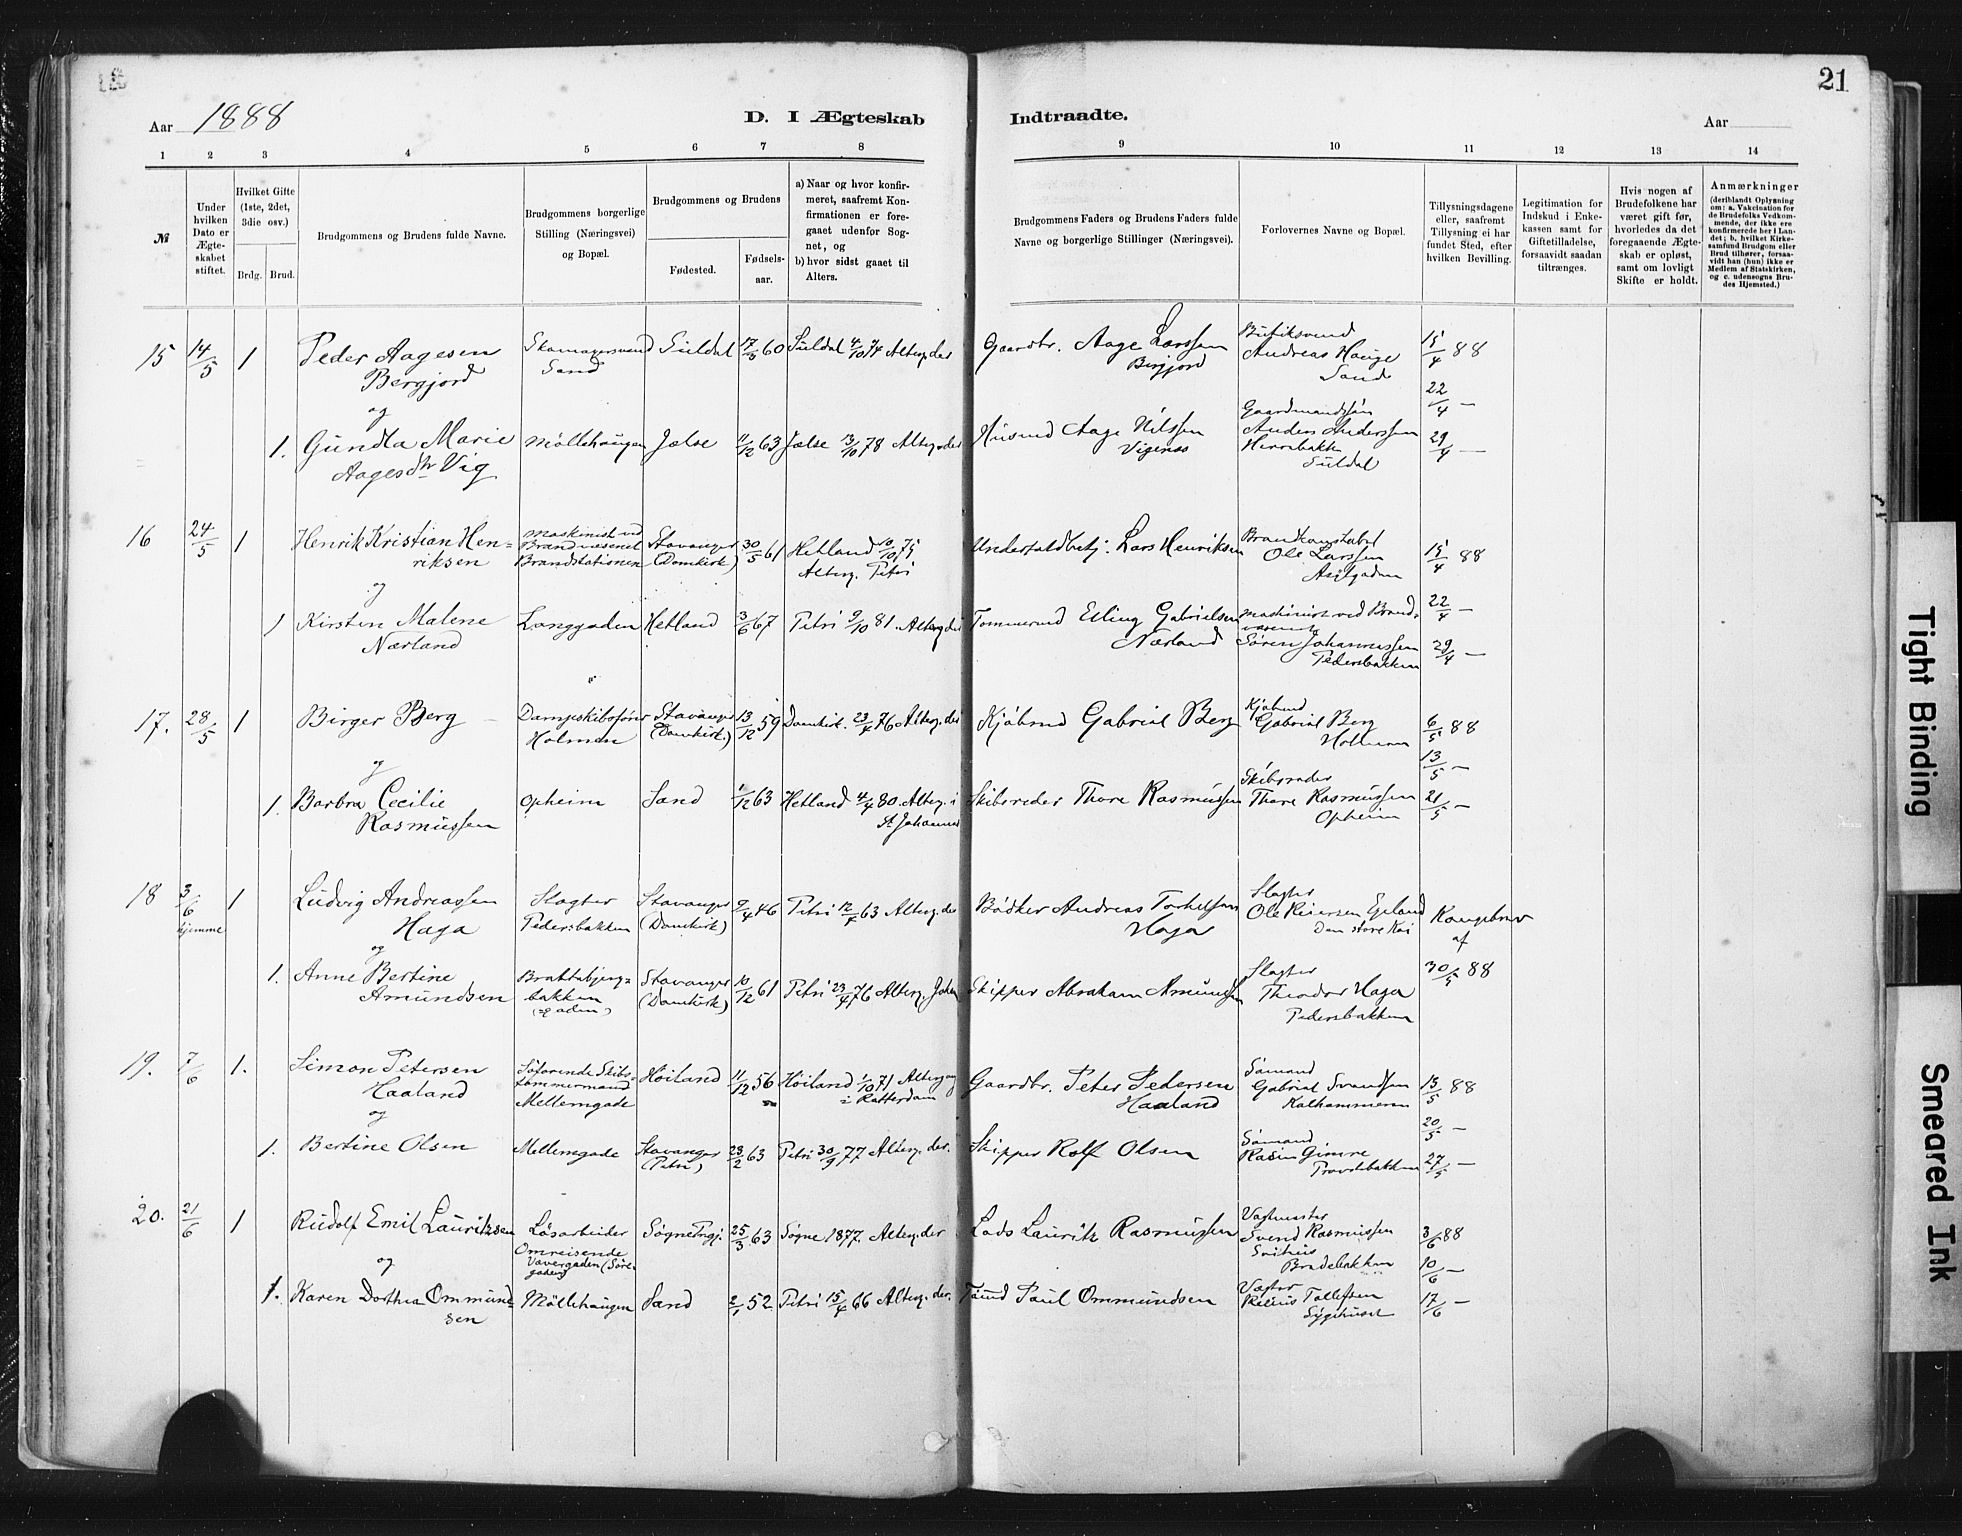 21
Aar 1888
D. I Ægteskab Indtraadte.
Aar
1 2 3 4 5 6 7 8 9 10 11 12 13 14
№
Under hvilken Dato er Ægteskabet stiftet.
Hvilket Gifte (1ste, 2det, 3die osv.)
Brdg. Brud.
Brudgommens og Brudens fulde Navne.
Brudgommens borgerlige Stilling (Næringsvei) og Bopæl.
Brudgommens og Brudens
Fødested.
Fødselsaar.
a) Naar og hvor konfirmeret, saafremt Konfirmationen er foregaaet udenfor Sognet, og
b) hvor sidst gaaet til Alters.
Brudgommens Faders og Brudens Faders fulde Navne og borgerlige Stillinger (Næringsvei).
Forlovernes Navne og Bopæl.
Tillysningsdagene eller, saafremt Tillysning ei har fundet Sted, efter hvilken Bevilling.
Legitimation for Indskud i Enkekassen samt for Giftetilladelse, forsaavidt saadan tiltrænges.
Hvis nogen af Brudefolkene har været gift før, hvorledes da det foregaaende Ægteskab er opløst, samt om lovligt Skifte er holdt.
Anmærkninger (deriblandt Oplysning om: a. Vakcination for de Brudefolks Vedkommende, der ikke ere konfirmerede her i Landet; b. hvilket Kirkesamfund Brudgom eller Brud tilhører, forsaavidt han (hun) ikke er Medlem af Statskirken, og c. udensogns Brudes Hjemsted.)
15 14/5 1 Peder Aagesen Bergjord Skomagersvend Sand Suldal 17/3 60 Suldal 4/10 74 Alterg. der Gaardbr. Aage Larssen Bergjord Butiksvend Andreas Hauge Sand 15/4 88
og 22/4 —
1. Gundla Marie Aagesdtr Vig Møllehaugen Jælse 11/12 63 Jælse 13/10 78 Alterg. der Husmd Aage Nilssen Vigenæs Gaardmandssøn Anders Anderssen Suldal 29/4 —
16 24/5 1 Henrik Kristian Henriksen Maskinist ved Brandvæsenet Brandstationen Stavanger (Domkirk) 30/5 61 Hetland 10/10 75 Alterg. Petri Lars Henriksen Brandkonstabel Ole Larssen Asylgaden 15/4 88
og
1 Kirsten Malene Nærland Langgaden Hetland 3/6 67 Petri 9/10 81. Alterg. der Tømmermd Elling Gabrielsen Nærland Maskinist ved Brandvæsenet Søren Johannessen Pedersbakken 22/4 — 29/4 —
17. 28/5 1 Birger Berg Dampskibsfører Holmen Stavanger (Domkirk.) 13/12 59 Domkirk. 23/4 76 Alterg. der Kjøbmd Gabriel Berg Kjøbmd Gabriel Berg Holmen 6/5 88
og 13/5 —
1. Barbra Cecilie Rasmussen Opheim Sand 1/12 63 Hetland 4/4 80. Alterg. i St Johannes Skibsreder Thore Rasmussen Skibsreder Thore Rasmussen Opheim 21/5 —
18 3/6 hjemme 1 Ludvig Andreassen Haga Slagter Pedersbakken Stavanger (Domkirk) 9/4 46 Petri 12/4 63 Alterg. der Bødker Andreas Torkelsen Haga Slagter Ole Reiersen Egeland Den store Kai Kongebrev af 30/5 88
og
1. Anne Bertine Amundsen Brattebjergbakken (gaden) Stavanger (Domkirk) 10/12 61 Petri 23/4 76 Alterg. Johan Skipper Abraham Amundsen Slagter Theodor Haga Pedersbakken
19. 7/6 1. Simon Petersen Haaland Søfarende Skibstømmermand Mellemgade Høiland 11/12 56 Høiland 1/10 71 Alterg. i Rotterdam Gaardbr. Peter Pedersen Haaland Sømand Gabriel Svendsen Kalhammeren 13/5 88
og 20/5 —
1. Bertine Olsen Mellemgade Stavanger (Petri) 23/2 63 Petri 30/9 77 Alterg. der. Skipper Rolf Olsen Sømand Rasm Gimre Provstebakken 27/5 —
20. 21/6 1 Rudolf Emil Lauritzsen Løsarbeider Omreisende Vævergaden Søgne Prgj. 25/3 63 Søgne 1877. Alterg. der Lods Lauritz Rasmussen Vagtmester Svend Rasmussen Bredebakken 3/6 88
og 10/6 —
1. Karen Dorthea Ommundsen Møllehaugen Sand 2/1 52 Petri 15/4 66 Alterg. der. Paul Ommundsen Vægter Tollefsen Sygehuset 17/6 —
Tight Binding
Smeared Ink